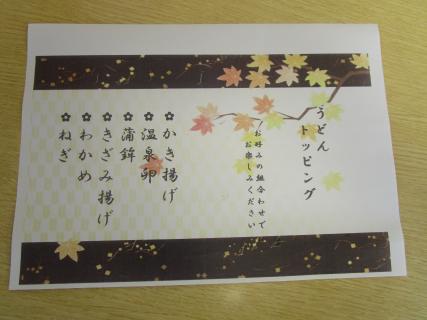 うどん
トッピング
お好みの組合わせで
お楽しみください
✿かき揚げ
✿温泉卵
✿蒲鉾
✿きざみ揚げ
✿わかめ
✿ねぎ